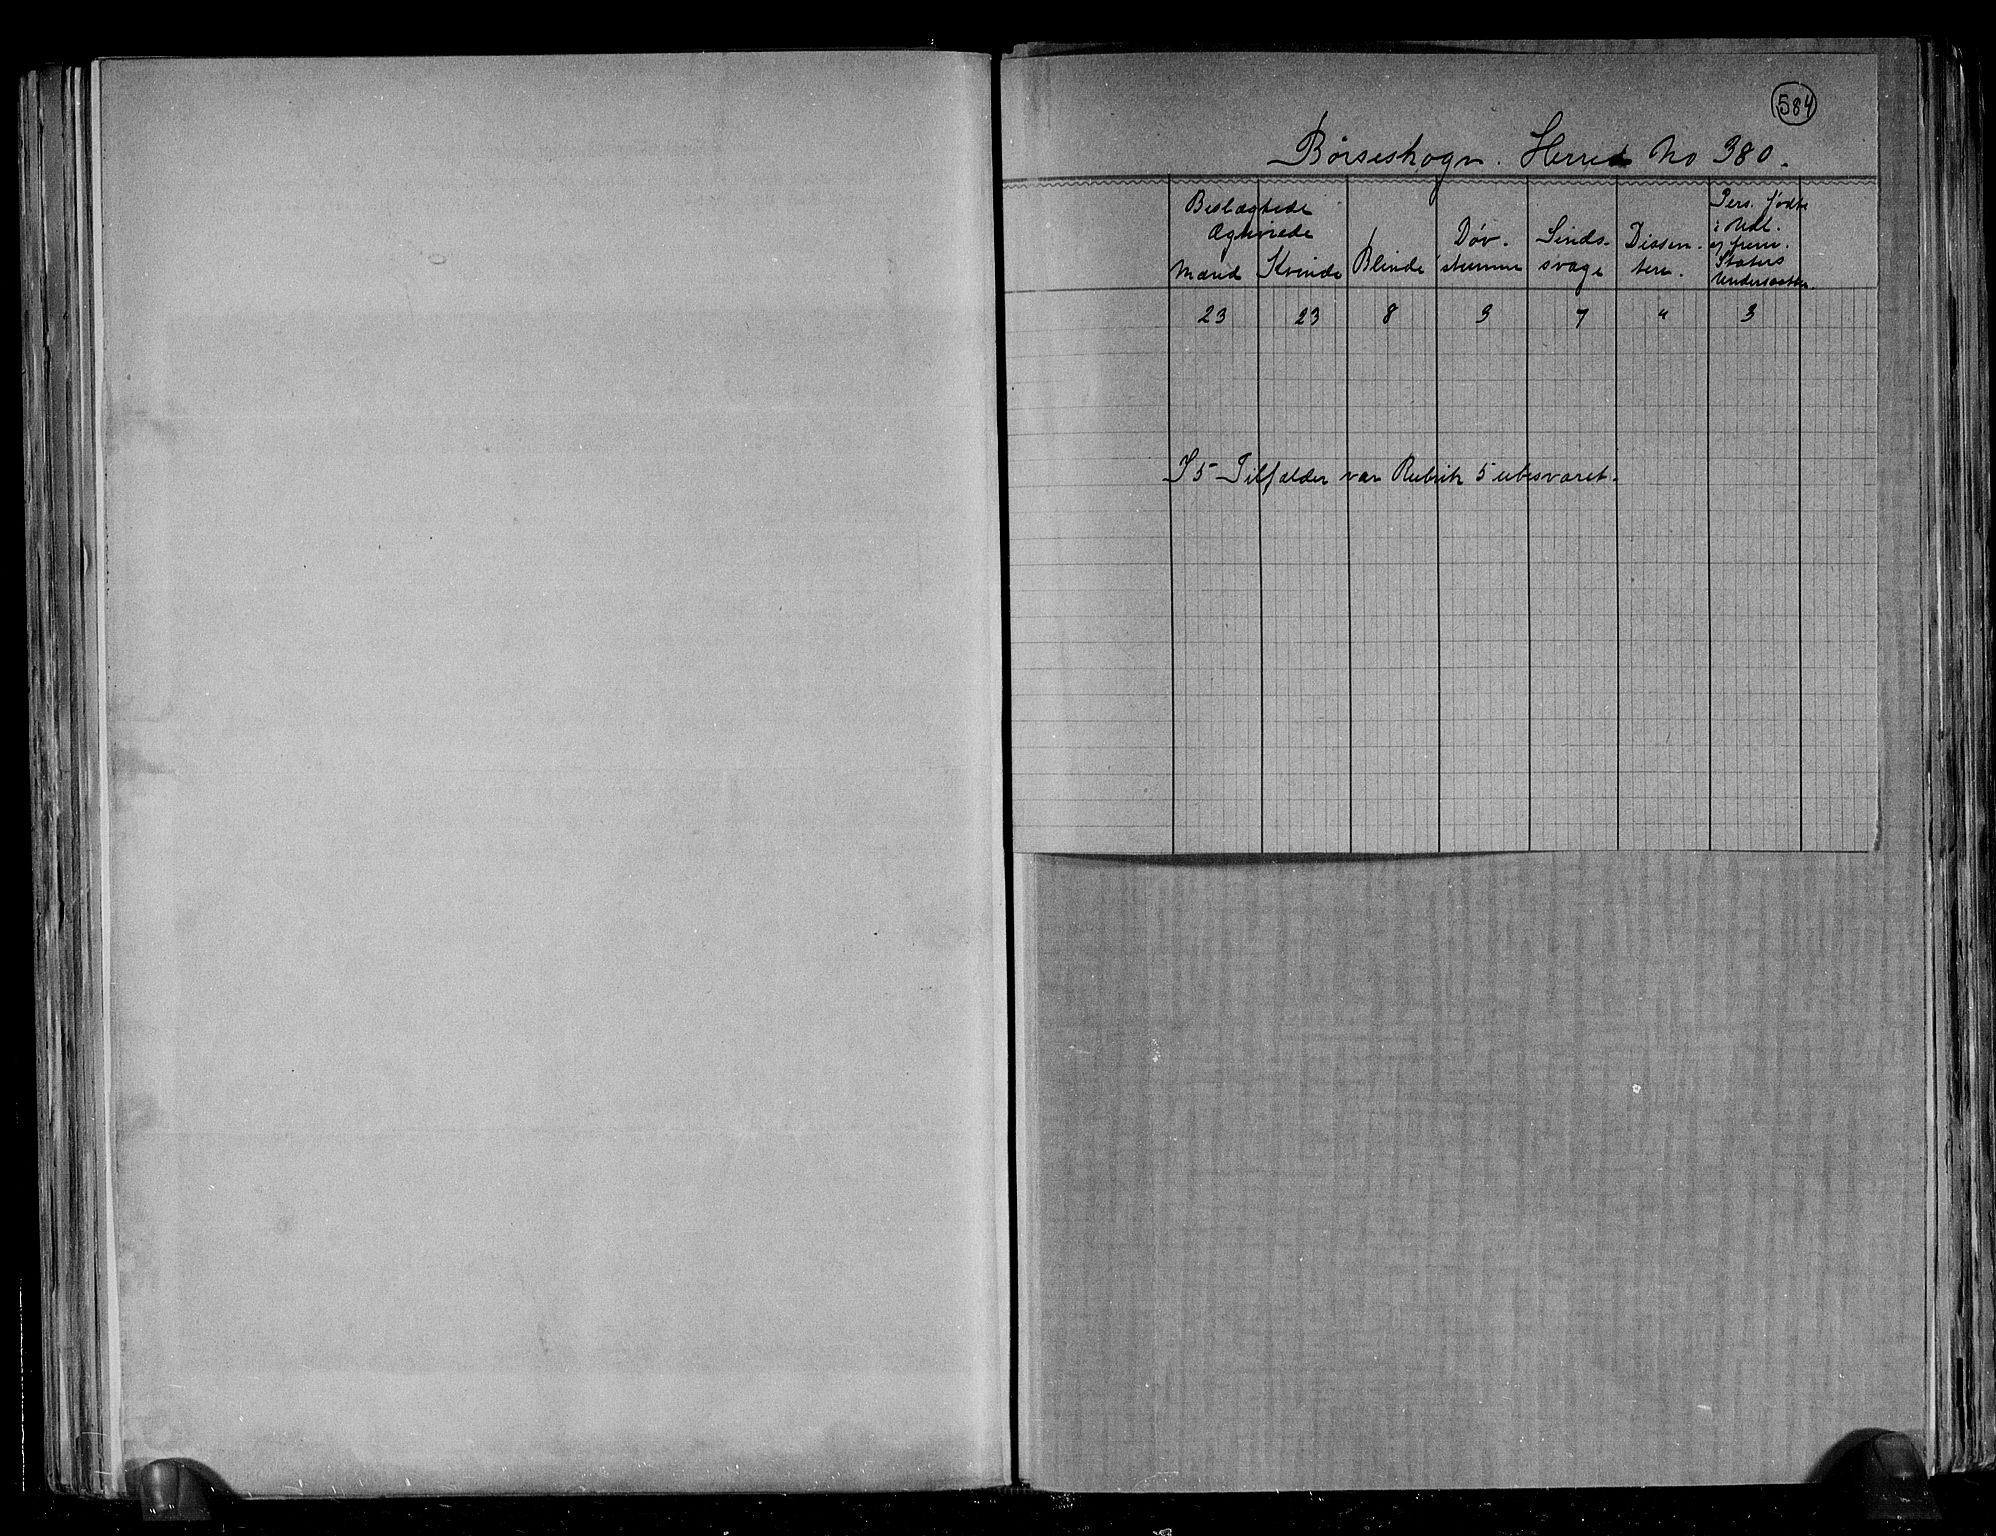 584
Børseskogn. Herred No 380.
Beslægtede
Ægteviede
Mænd
Kvinde
Blinde
Døv-
stumme
Sinds-
svage
Dissen-
tere.
Pers. fødte
i Udl.
og frem.
Staters
Undersaatter.
23 23 8 3 7 " 3
I 5 Tilfælder var Rubrik 5 ubesvaret.